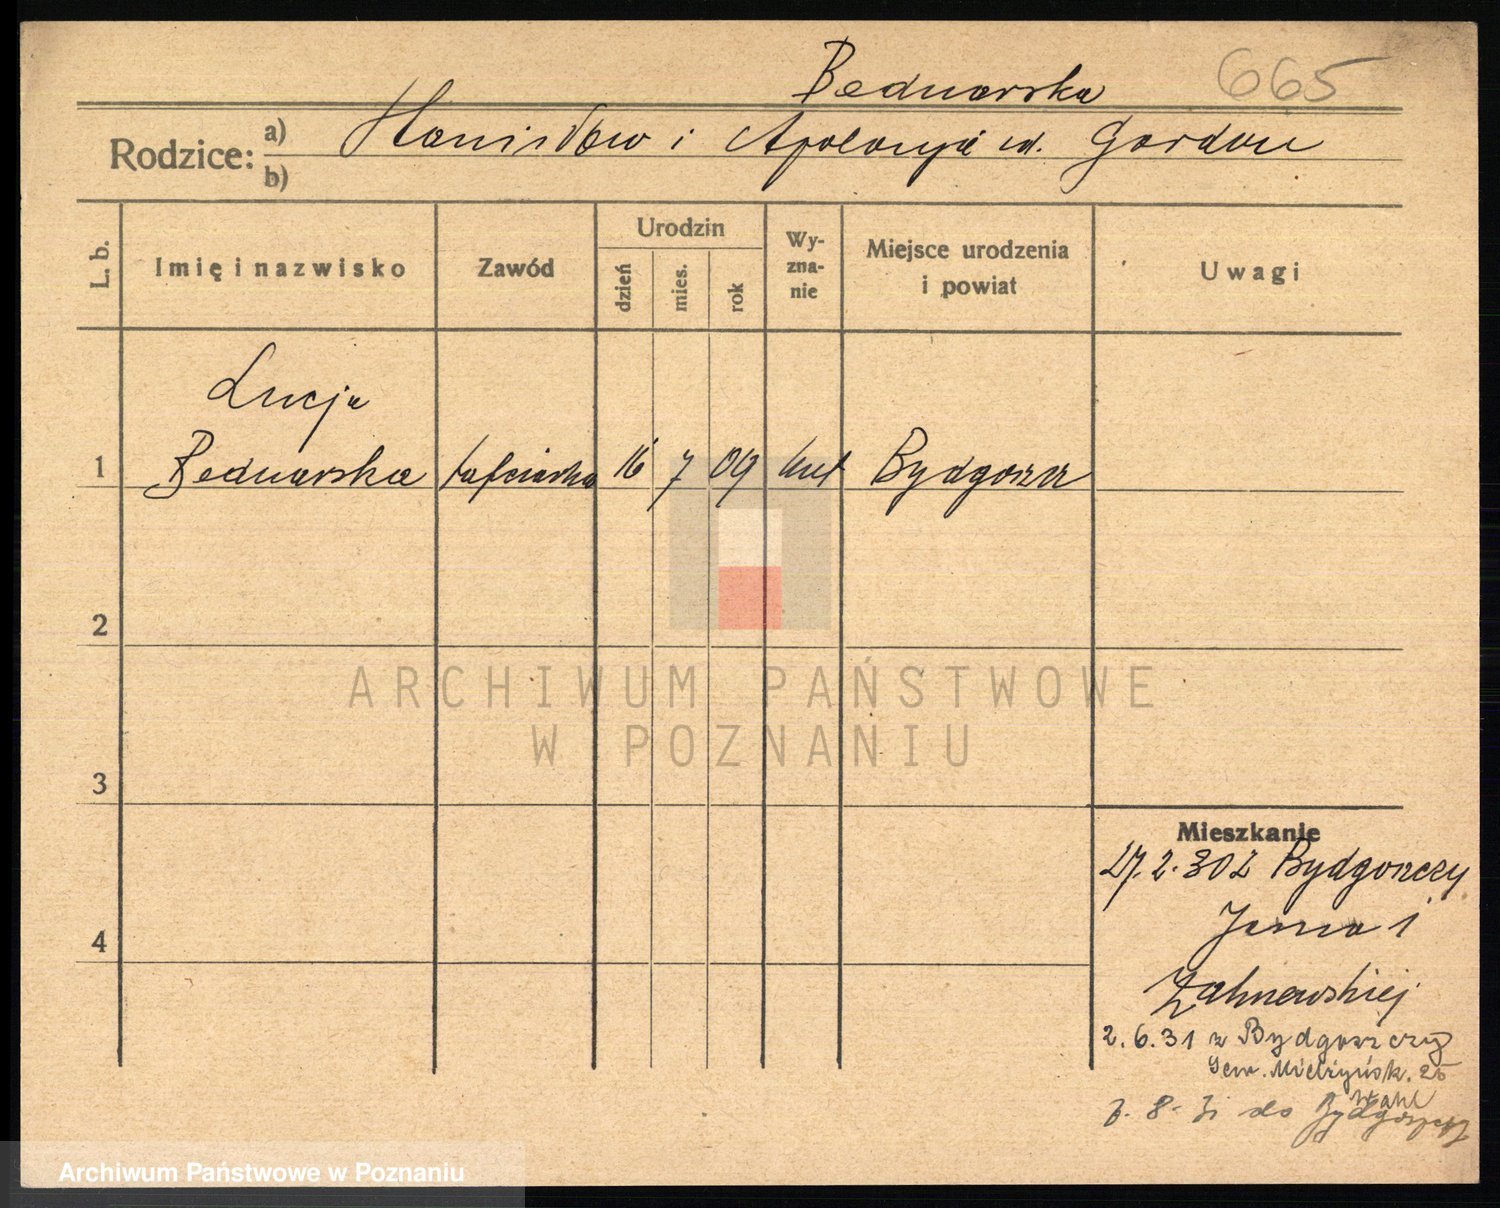 Bednarska 665
Rodzice: a) Stanisław i Apolonja ud. Gordon
b)
L. b. Imię i nazwisko Zawód Urodzin dzień mies. rok Wy-zna-nie Miejsce urodzenia i powiat Uwagi
Lucja
1 Bednarska hafciarka 16 7 09 kat Bydgoszcz
2
ARCHIWUM PAŃSTWOWE
W POZNANIU
3
Mieszkanie
27.2.30 z Bydgoszczy
4
2.6.31 z Bydgoszczy
Sew. Mielżyńsk. 25
do Bydgoszczy
Archiwum Państwowe w Poznaniu